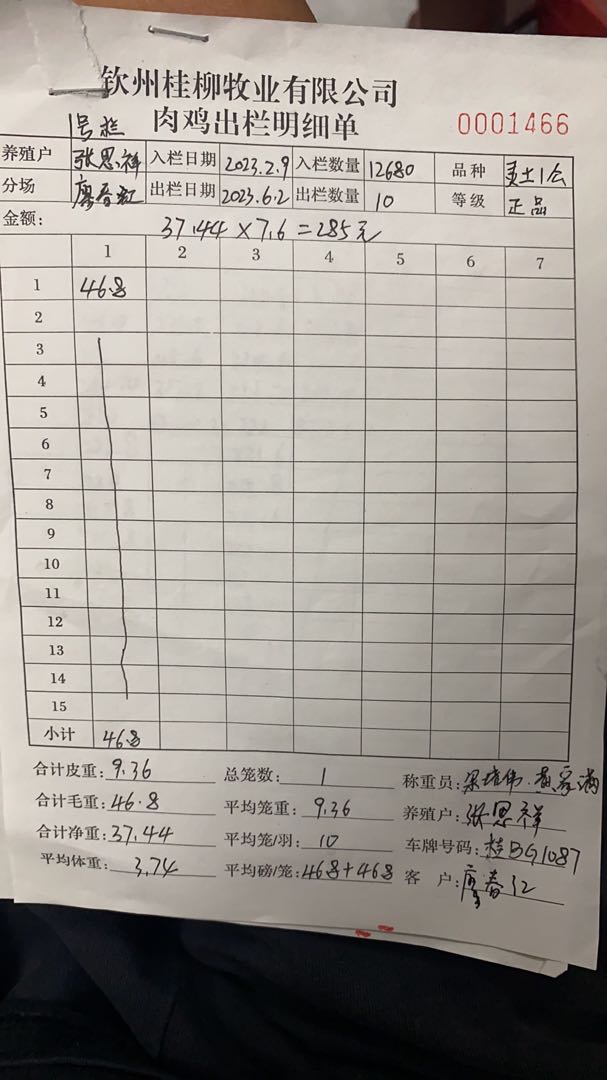 钦州桂柳牧业有限公司
肉鸡出栏明细单 0001466
1号栏
养殖户 张思祥 入栏日期 2023.2.9 入栏数量 12680 品种 土1公
分场 廖春红 出栏日期 2023.6.2 出栏数量 10 等级 正品
金额: 37.44×7.6=285元
1 2 3 4 5 6 7
1 46.8
2
3
4
5
6
7
8
9
10
11
12
13
14
15
小计 46.8
合计皮重: 9.36 总笼数: 1 称重员:
合计毛重: 46.8 平均笼重: 9.36 养殖户: 张思祥
合计净重: 37.44 平均笼/羽: 10 车牌号码: 桂BG1087
平均体重: 3.74 平均磅/笼: 468+468 客户: 廖春江